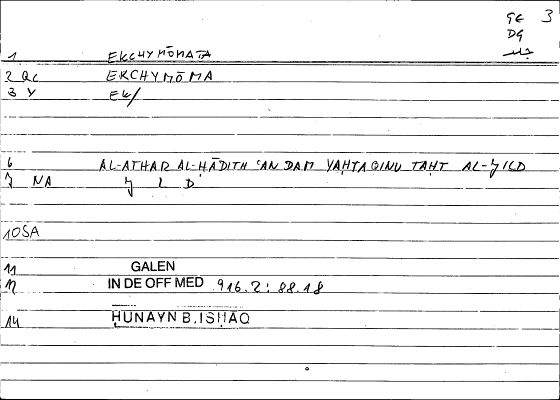 GE 3
DG
جلد
1 EKCHYMŌMATA
2 QC EKCHYMŌMA
3 Y EK/
6 AL-ATHAR AL-ḤĀDITH ʿAN DAM YAḤTAQINU TAḤT AL-JILD
7 NA J L D
10 SA
11 GALEN
12 IN DE OFF MED 916.2: 88.18
14 ḤUNAYN B. ISḤĀQ